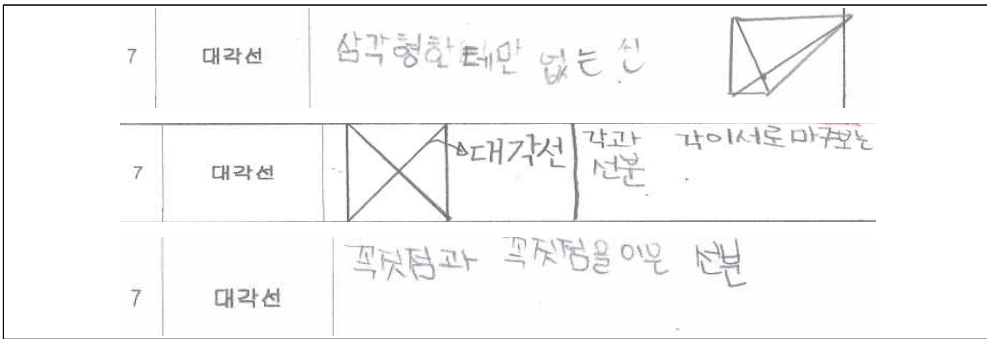 7 대각선 삼각형한테만 없는 선
7 대각선 대각선 각과 각이서로마주보는
선분
7 대각선 꼭짓점과 꼭짓점을 이은 선분